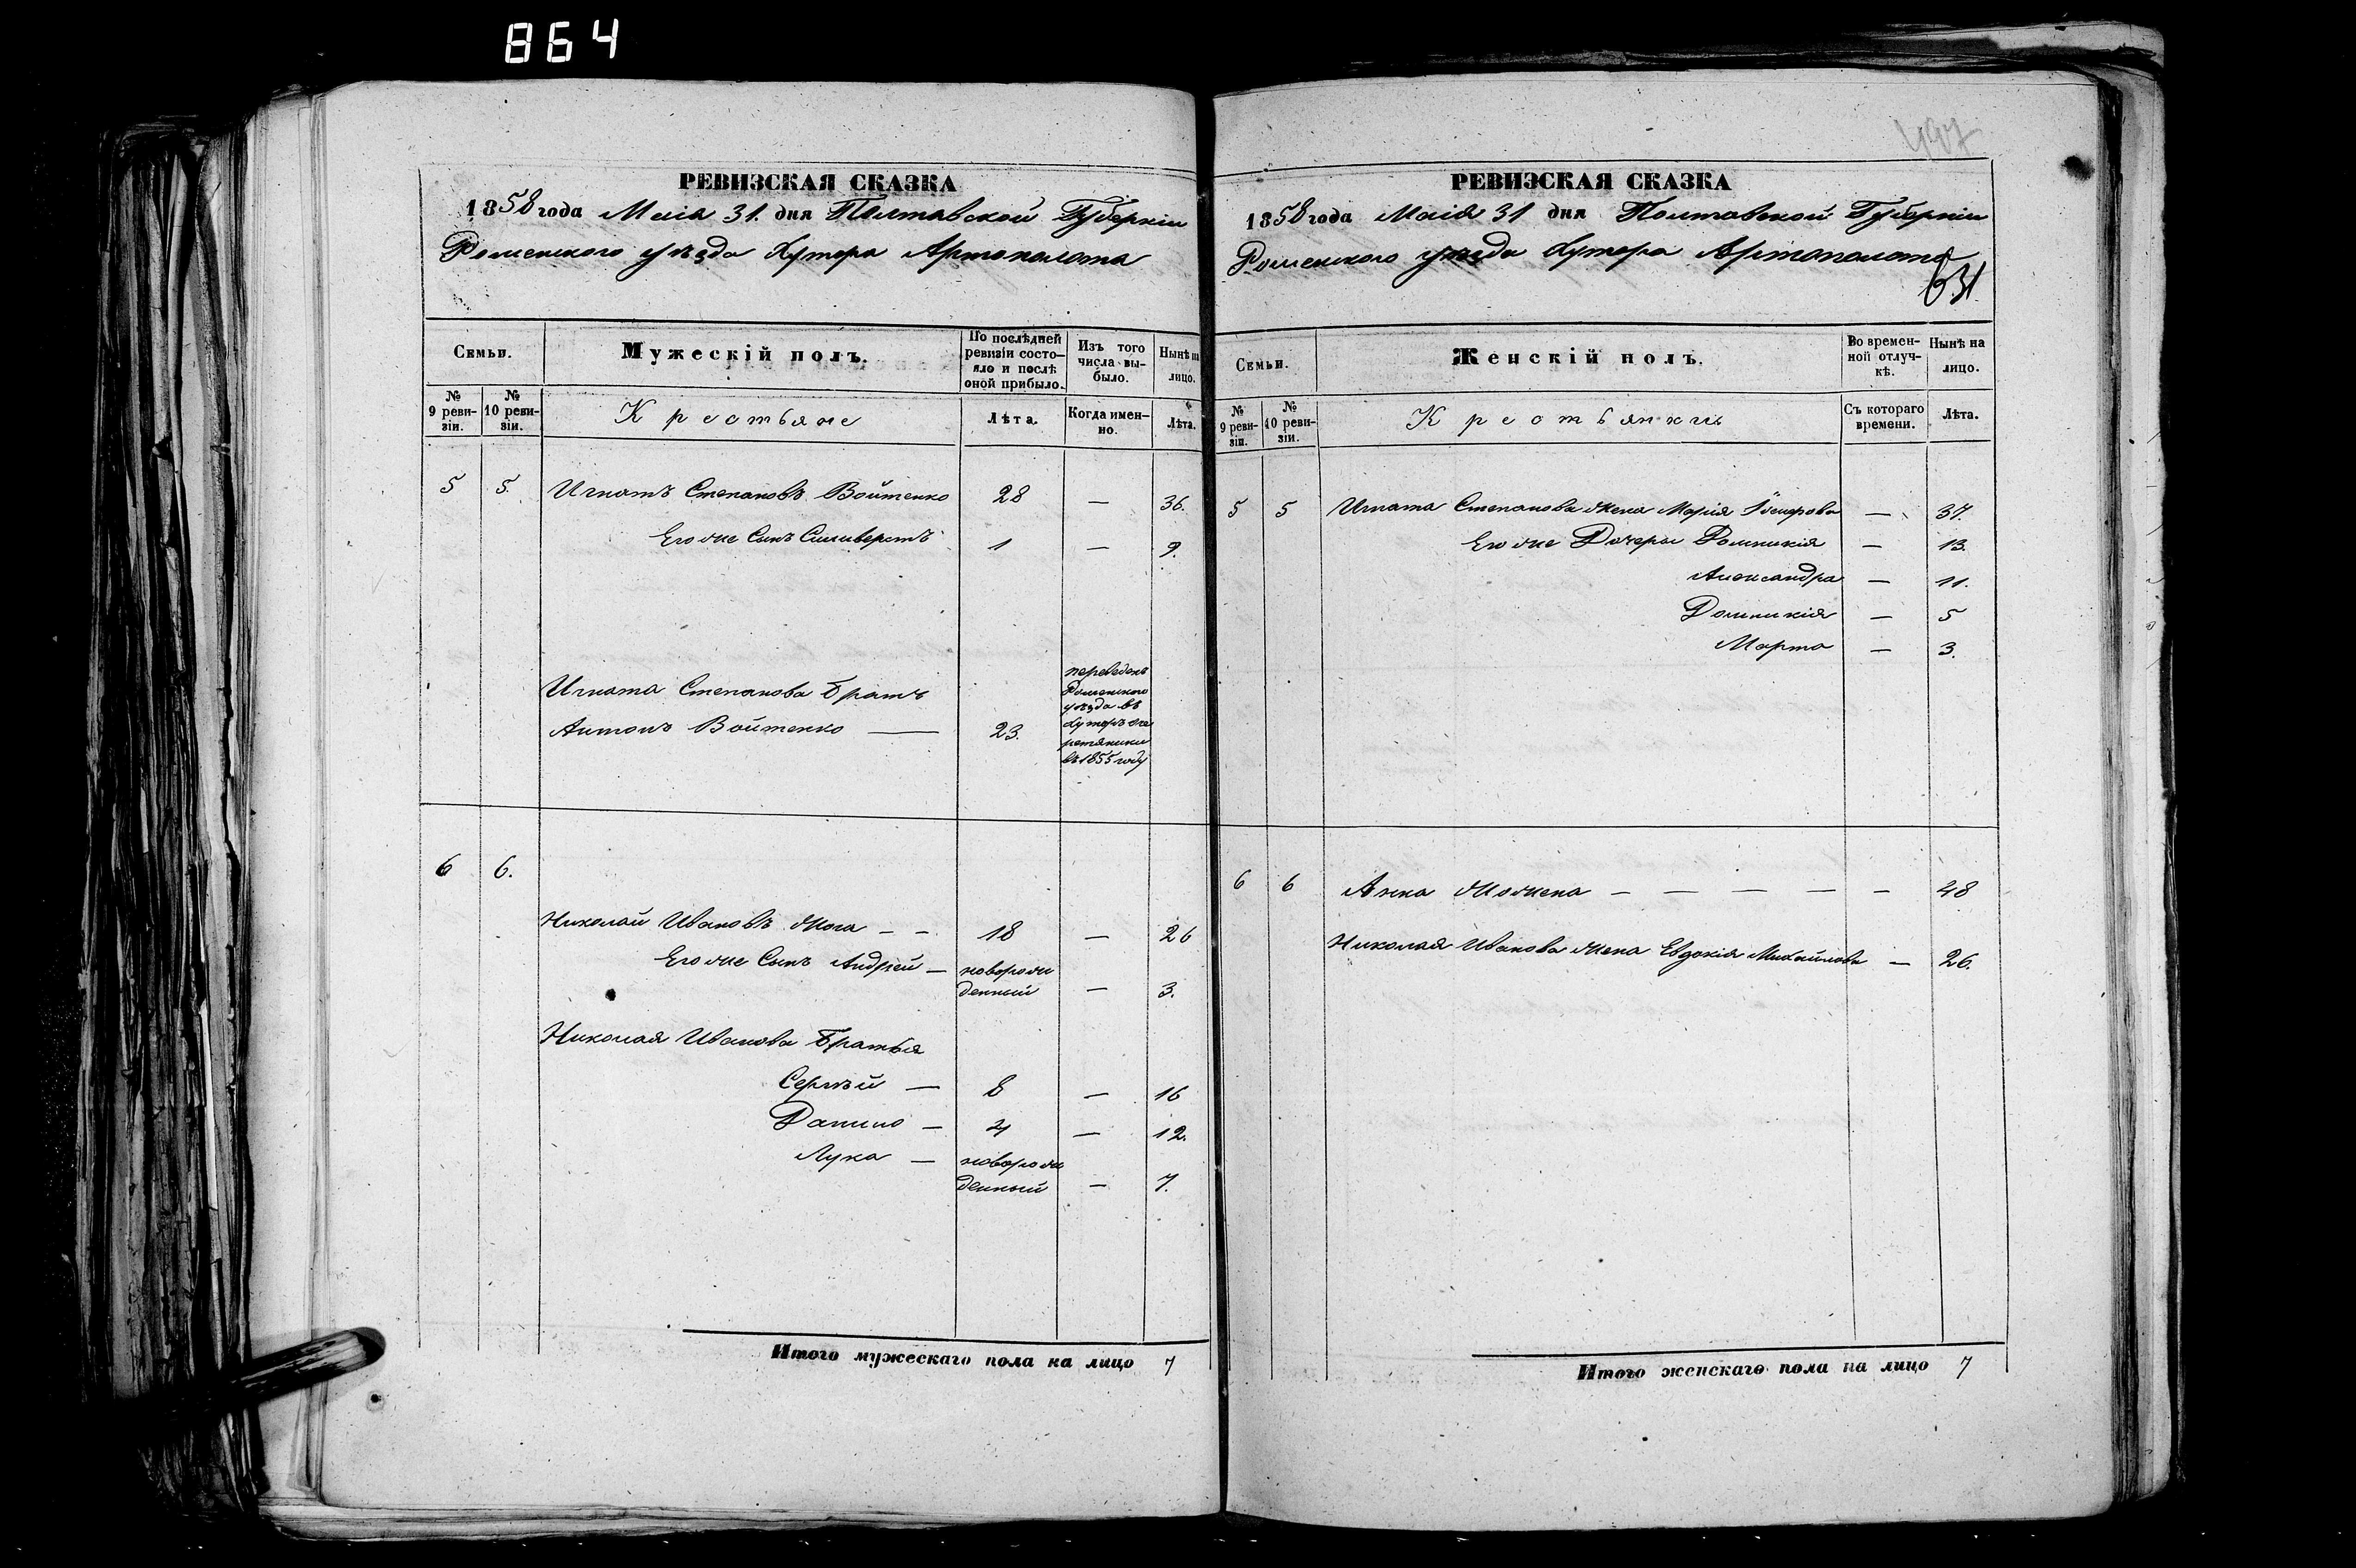 864
497
РЕВИЗСКАЯ СКАЗКА
1858 года Маія 31. дня Полтавской Губерніи
Роменского уѣзда Хутора Артополота
Семьи.
Мужескій полъ.
По послѣдней ревизіи состояло и послѣ оной прибыло.
Изъ того числа выбыло.
Нынѣ на лицо.
№ 9 ревизіи.
№ 10 ревизіи.
Крестьяне
Лѣта.
Когда именно.
Лѣта.
5 5. Игнатъ Степановъ Войтенко 28 — 36.
Его же Сынъ Сильверстъ 1 — 9.
Игната Степанова Братъ
Антонъ Войтенко — 23.
переведенъ
Роменского
уѣзда въ
Хуторъ Оче
ретяники
въ 1855 году
6 6.
Николай Ивановъ Жога — — 18 — 26
Его же Сынъ Андрей — новорож
денный — 3.
Николая Иванова Братья
Сергѣй — 8 — 16
Данило — 4 — 12.
Лука — новорож
денный — 7.
Итого мужескаго пола на лицо 7
РЕВИЗСКАЯ СКАЗКА
1858 года Маія 31 дня Полтавской Губерніи
Роменского уѣзда Хутора Артополота
631.
Семьи.
Женскій полъ.
Во временной отлучкѣ.
Нынѣ на лицо.
№ 9 ревизіи.
№ 10 ревизіи.
Крестьянки
Съ котораго времени.
Лѣта.
5 5 Игната Степанова жена Марія — 37.
Его же Дочери Домникія — 13.
Александра — 11.
Домникія — 5
Марта — 3.
6 6 Анна — — — — — 48
Николая Иванова жена Евдокія Михайлова — 26.
Итого женскаго пола на лицо 7